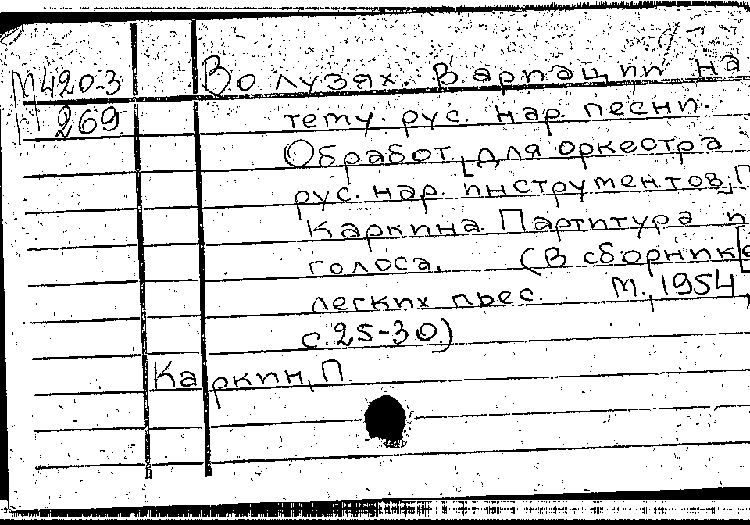 М420.3
269
Во лузях. Вариации на
тему рус. нар. песни.
Обработ. для оркестра
рус. нар. инструментов, П.
Каркина. Партитура и
голоса. (В сборнике
легких пьес. М., 1954,
с. 25-30)
Каркин, П.